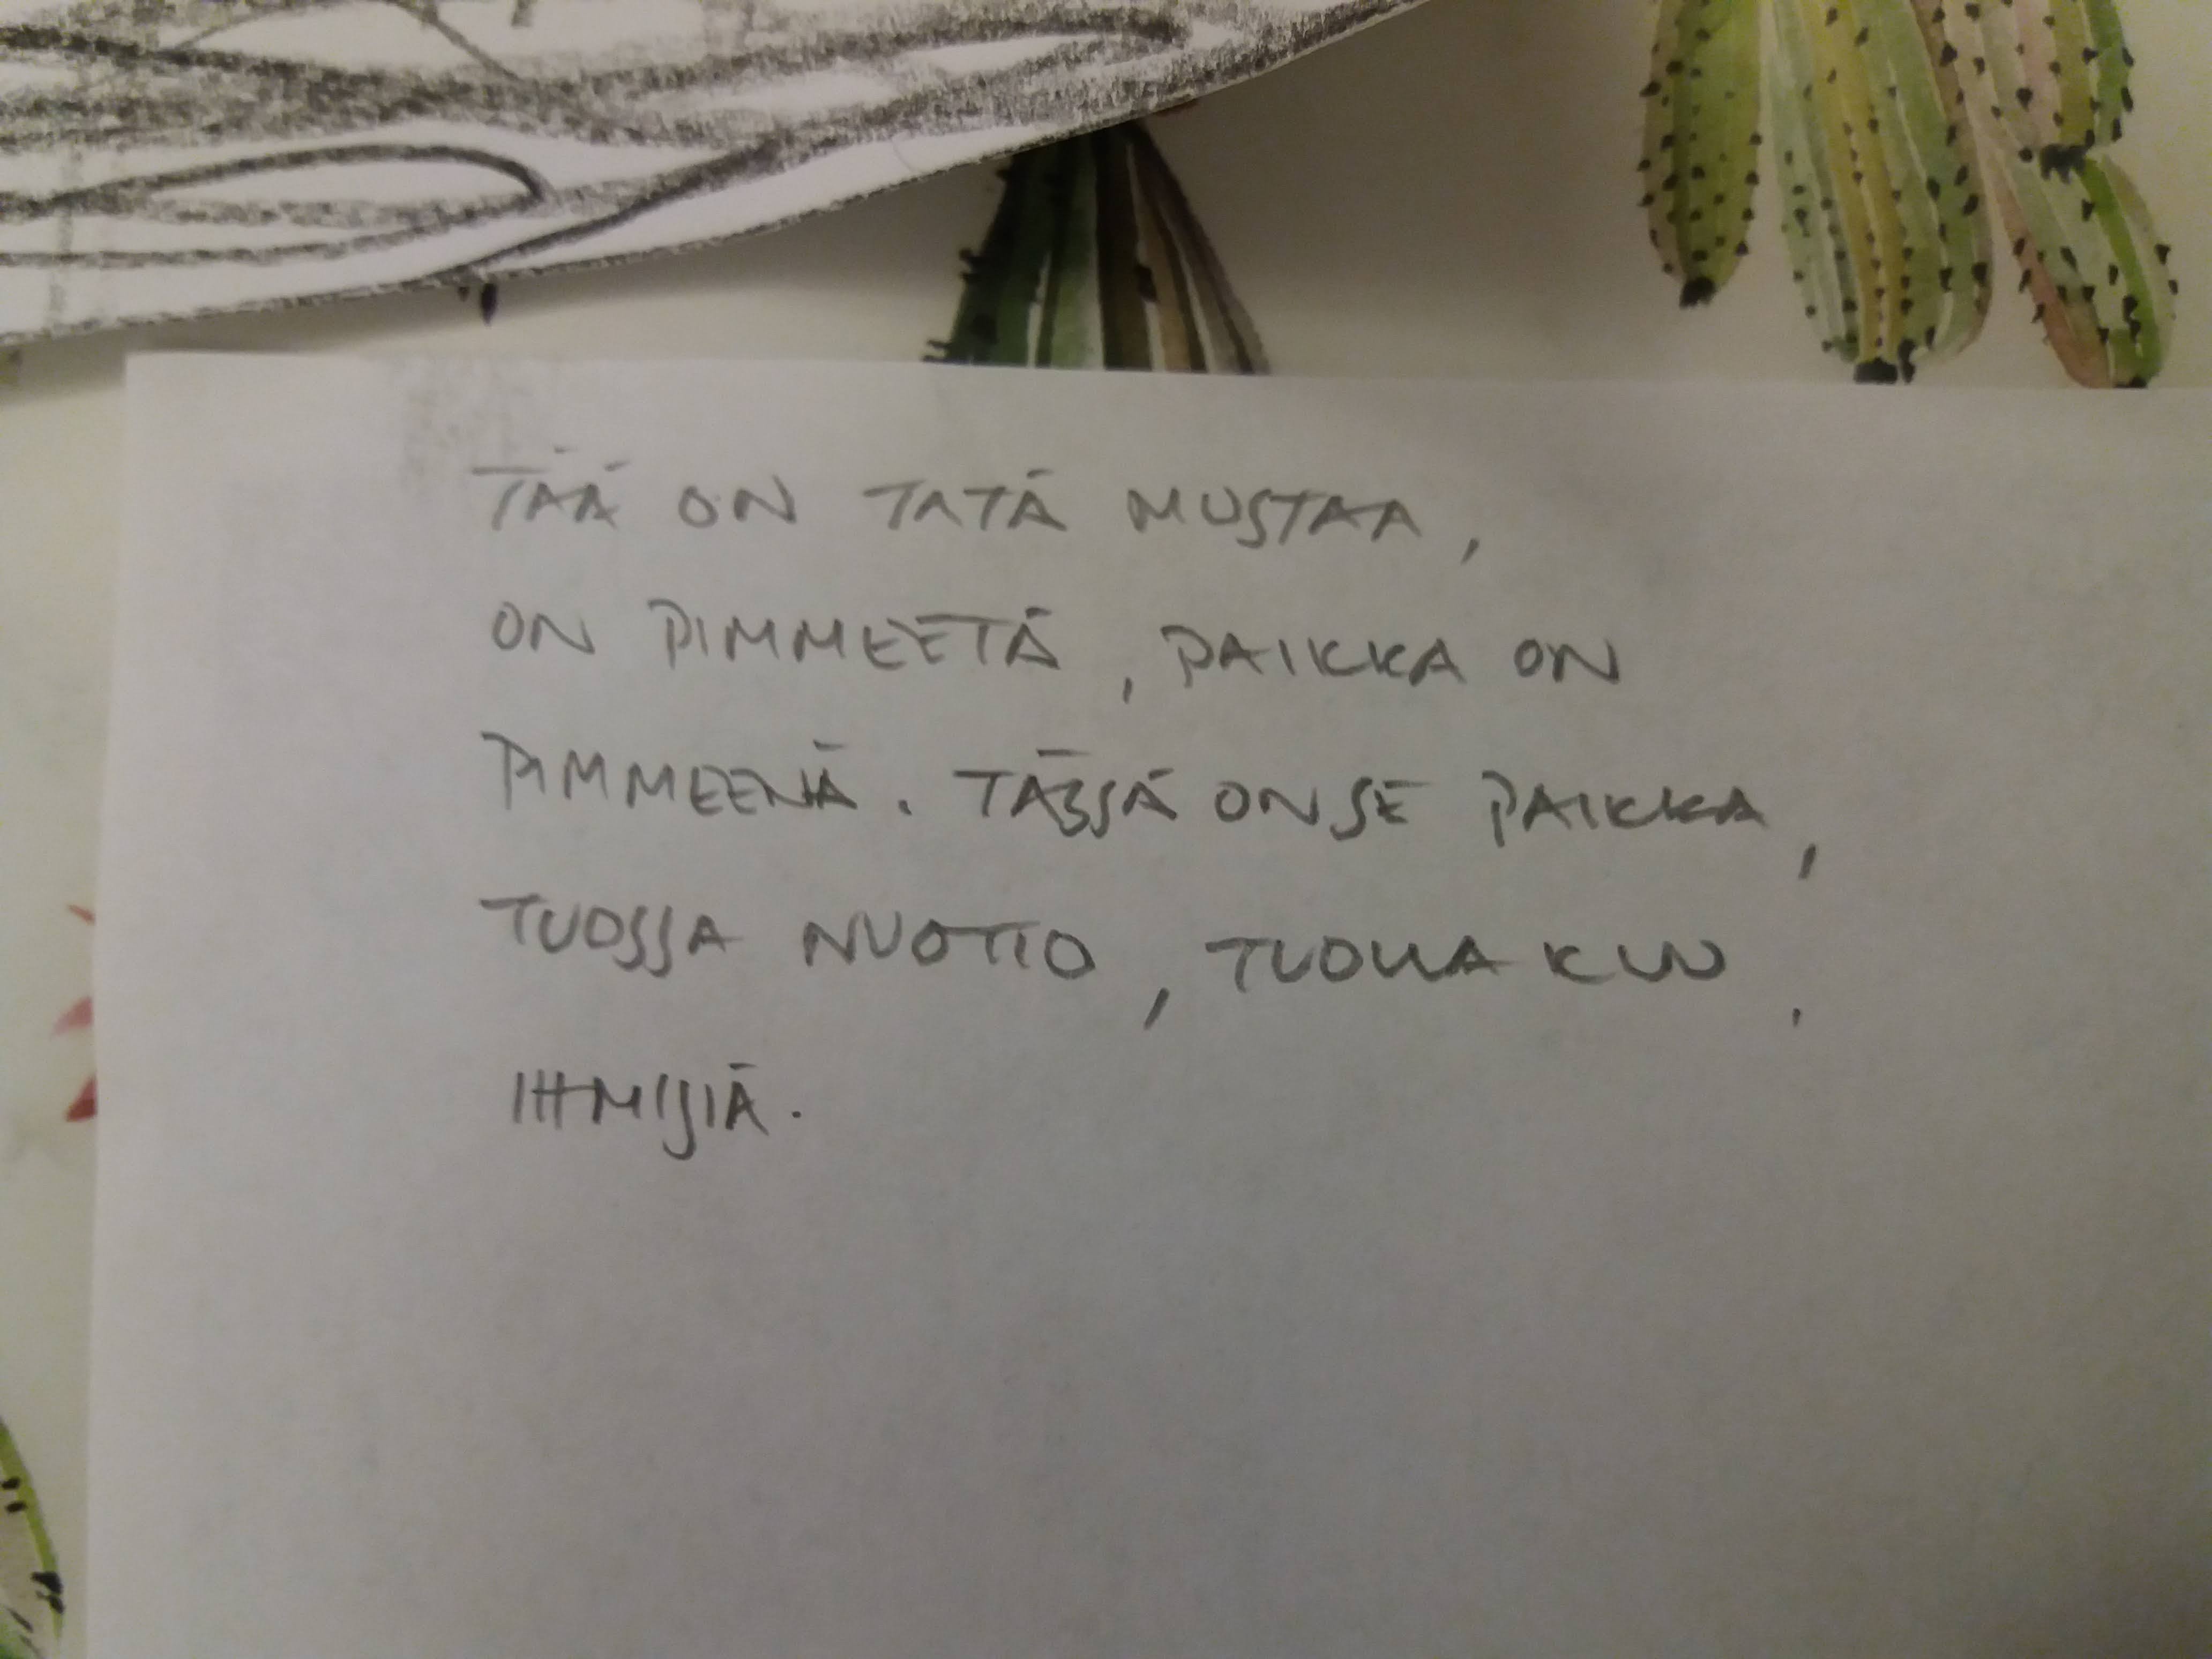 TÄÄ ON TATÄ MUSTAA,
ON PIMMEETÄ, PAIKKA ON
PIMMEENÄ. TÄSSÄ ON SE PAIKKA,
TUOSSA NUOTIO, TUOLLA KUU,
IHMISIÄ.